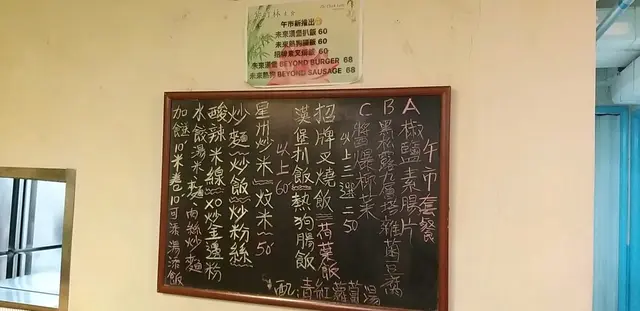 午市新推出
未來漢堡扒飯 60
未來熱狗腸飯 60
招牌素叉燒飯 60
未來漢堡 BEYOND BURGER 68
未來熱狗 BEYOND SAUSAGE 68
午市套餐
A 椒鹽素腸片
B 黑椒
雜菌豆腐
C
以上三選二 50
招牌叉燒飯 荷葉飯
漢堡扒飯 熱狗腸飯
以上 60
星州炒米 炆米 50
炒麵 炒飯 炒粉絲
酸辣米線 XO炒金邊粉
水餃湯米 麵 肉絲炒麵
加餸10 米卷10 可添湯添飯
配 清紅蘿蔔湯